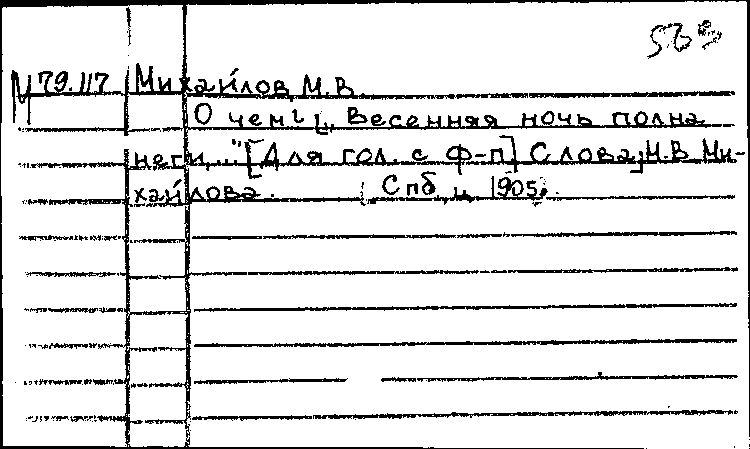 М 79.117 Михайлов, М.В.
О чем! „Весенняя ночь полна
неги..." [Для гол. с ф-п] Слова М.В. Ми-
хайлова. Спб, ц. 1905.